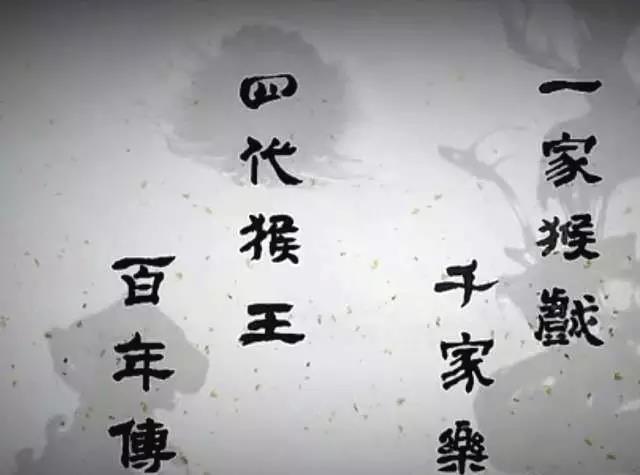 一家猴戲
千家樂
四代猴王
百年傳